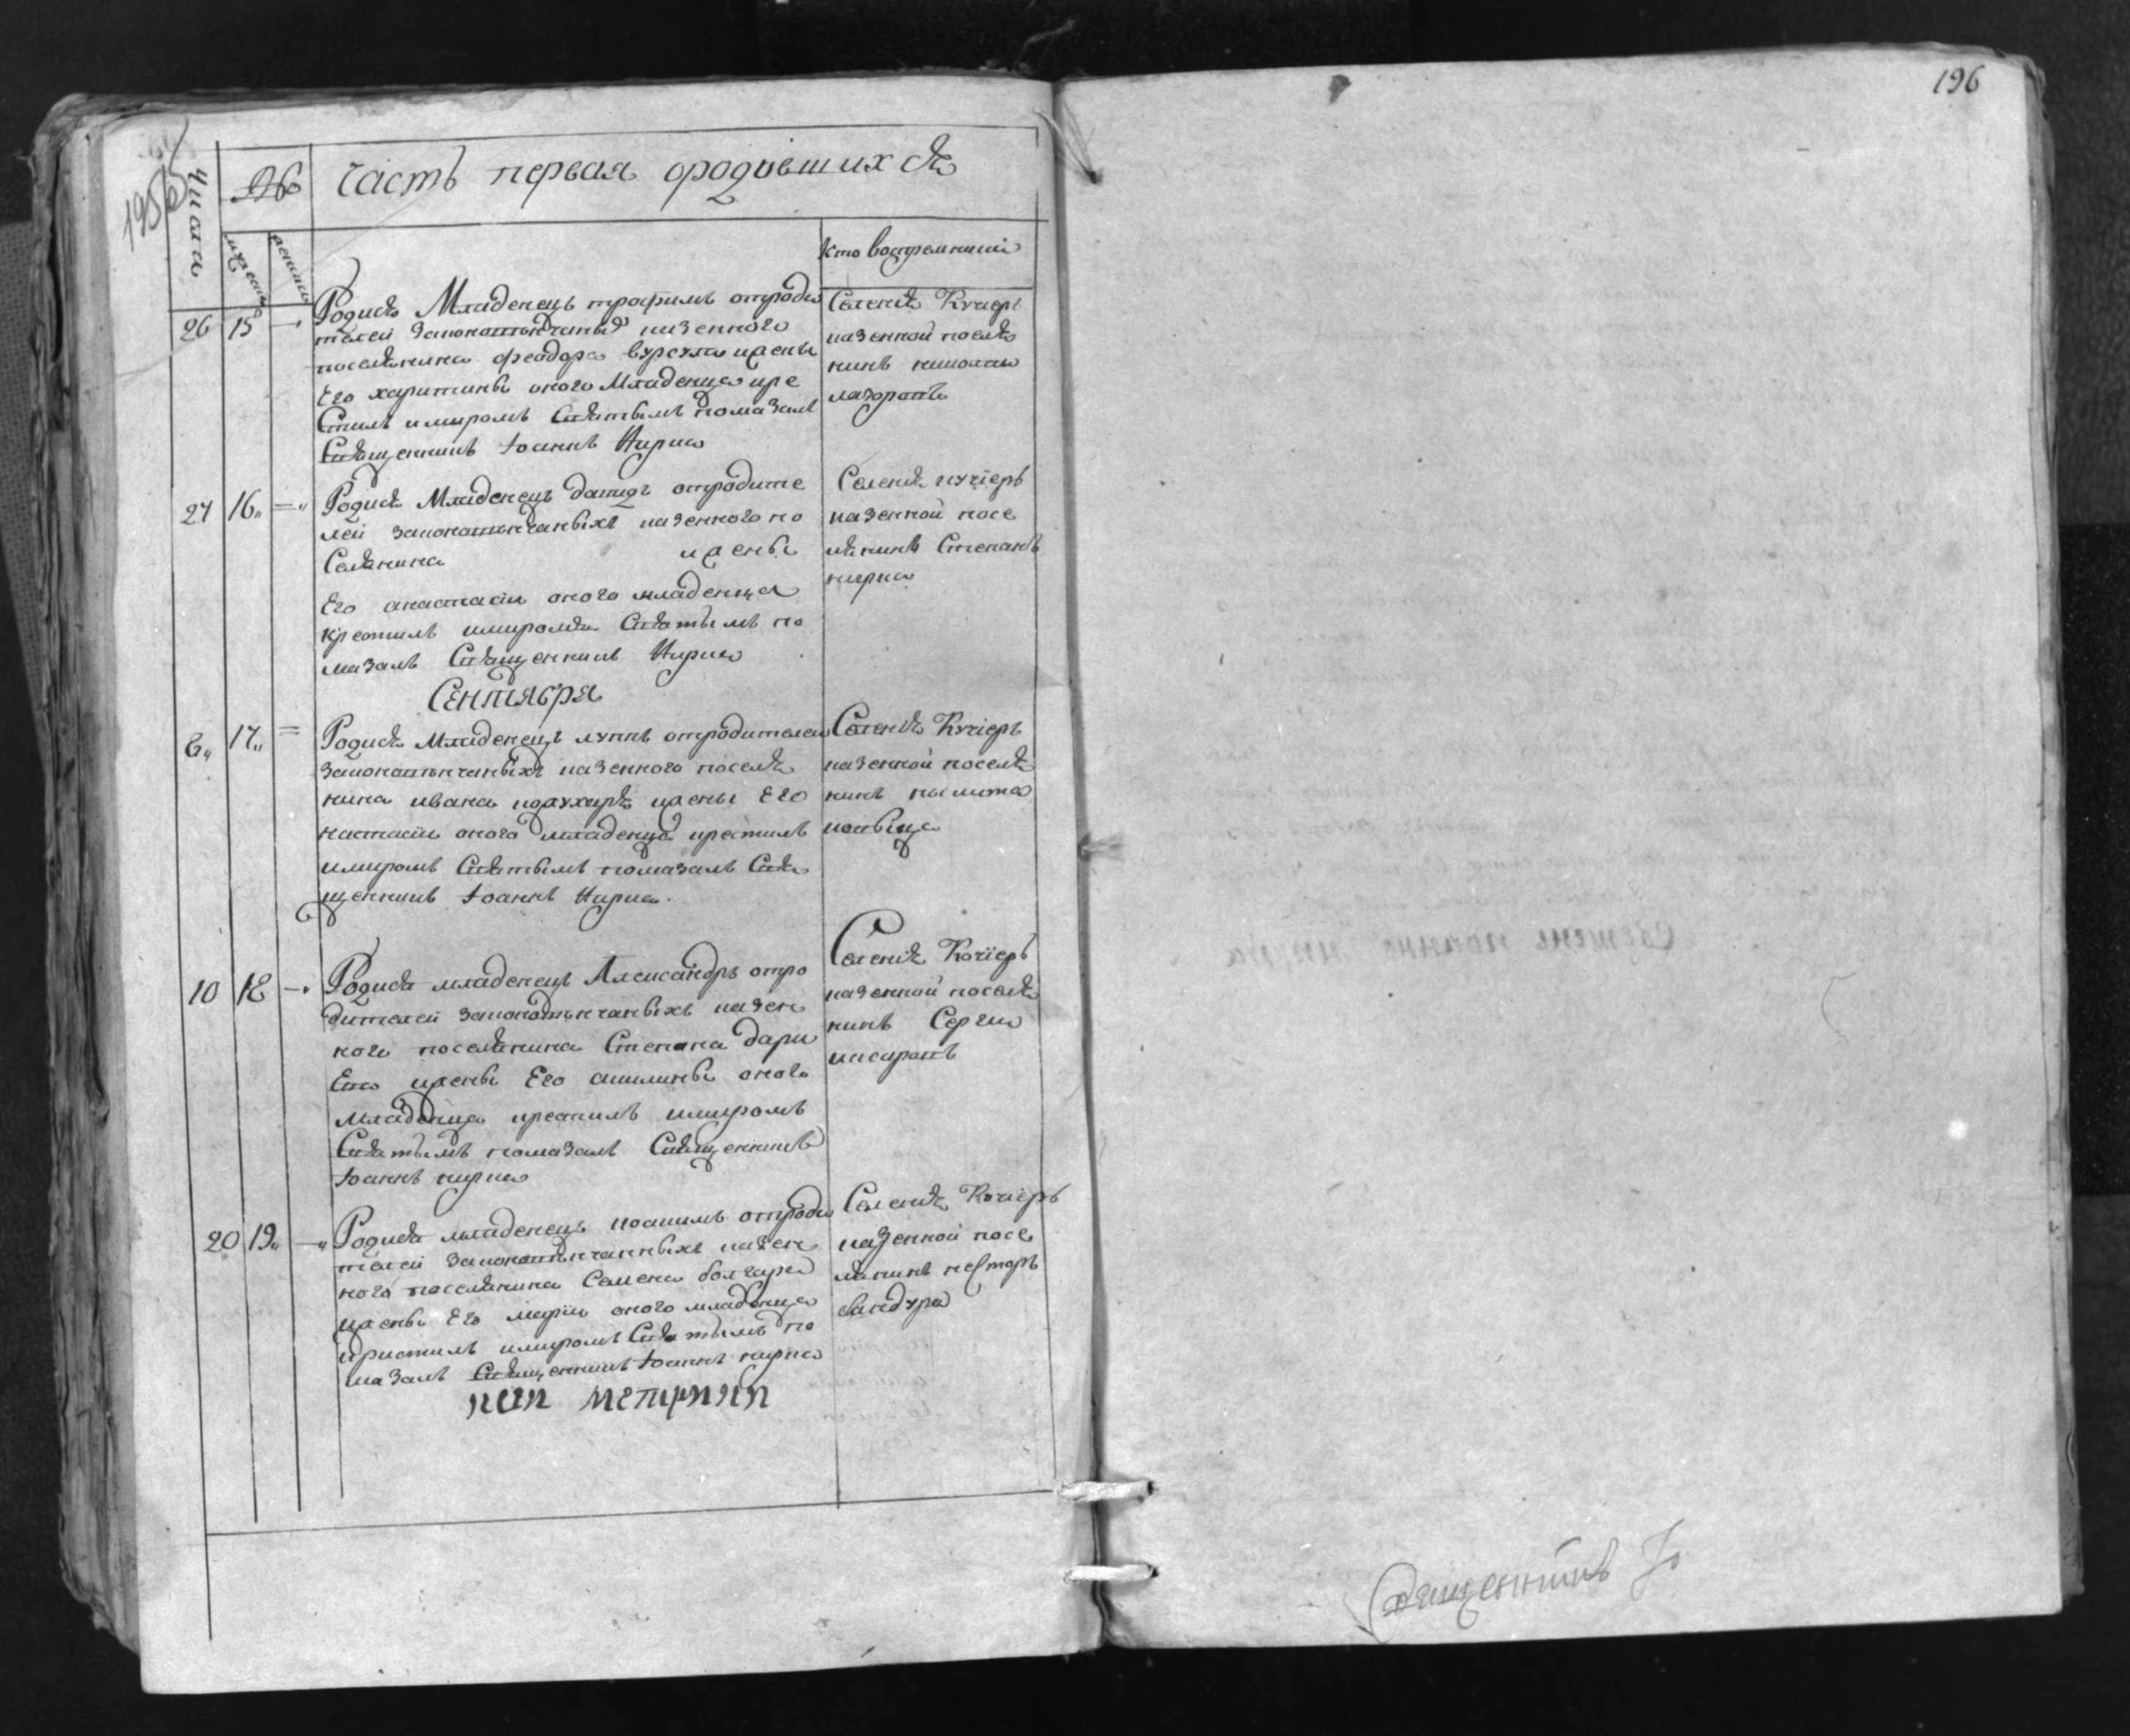 195
Числа
№
Часть первая о родившихся
мужеска
женска
Кто восприемники
26 15
Родися Младенецъ трофимъ отроди
телей Законовѣнчаныхъ казенного
поселянина феодора
Его харитины оного Младенца кре
Стилъ имиромъ Святымъ помазалъ
Священникъ Іоаннъ Кирка
Селенія Кучіеръ
казенной поселя
нинъ николаи
27 16
Родися Младенецъ давидъ отродите
лей законовѣнчаныхъ казенного по
Селянина жены
Его анастасіи оного младенца
крестилъ имиромъ Святымъ по
мазалъ Священникъ Кирка
Селенія кучіеръ
казенной посе
лянинъ Степанъ
кирка
Сентября
6 17
Родися Младенецъ луппъ отродителей
законовѣнчаныхъ казенного поселя
нина ивана жены Его
настасіи оного младенца крестилъ
имиромъ Святымъ помазалъ Свя
щенникъ Іоаннъ Кирка
Селенія Кучіеръ
казенной поселя
нинъ
10 18
Родися младенецъ Александръ отро
дителей законовѣнчаныхъ казен
ного поселянина Степана дари
жены Его акилины оного
младенца крестилъ имиромъ
Святымъ помазалъ Священникъ
Іоаннъ кирка
Селенія Кочіеръ
казенной поселя
нинъ Сергии
20 19
Родися младенецъ иоакимъ отроди
телей законовѣнчанныхъ казен
ного поселянина Семена болгара
жены Его маріи оного младенца
кристилъ имиромъ Святымъ по
мазалъ Священникъ Іоаннъ кирка
Селенія Кочіеръ
казенной посе
лянинъ несторъ
бандура
196
Священникъ Іо